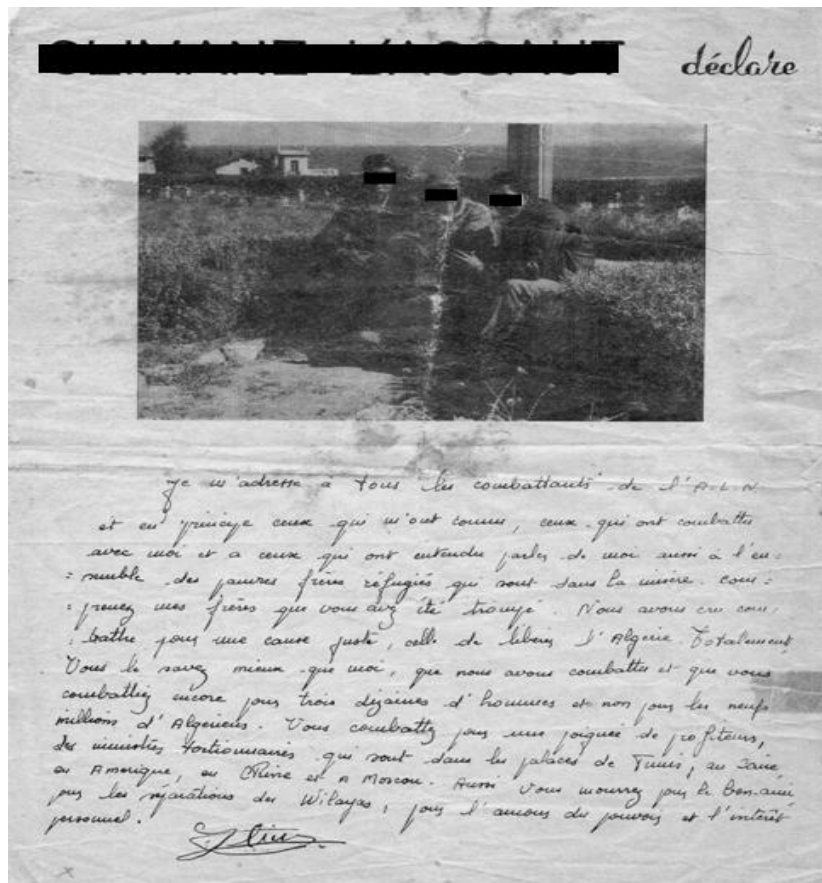 déclare
Je m'adresse à tous les combattants de l'A.L.N.
et en principe ceux qui m'ont connu, ceux qui ont combattu
avec moi et a ceux qui ont entendu parler de moi aussi à l'en=
=semble des pauvres frères réfugiés qui sont dans la misère. Com=
=prenez mes frères que vous avez été trompé. Nous avons cru com=
=battre pour une cause juste, celle de libérer l'Algérie Totalement
Vous le savez mieux que moi, que nous avons combattu et que vous
combattiez encore pour trois dizaines d'hommes et non pour les neufs
millions d'Algériens. Vous combattez pour une poignée de profiteurs,
des ministres tortionnaires qui sont dans les palaces de Tunis, au Caire,
en Amérique, en Chine et a Moscou. Aussi vous mourrez pour le
pour les séparations des Wilayas, pour l'amour du pouvoir et l'intérêt
personnel.